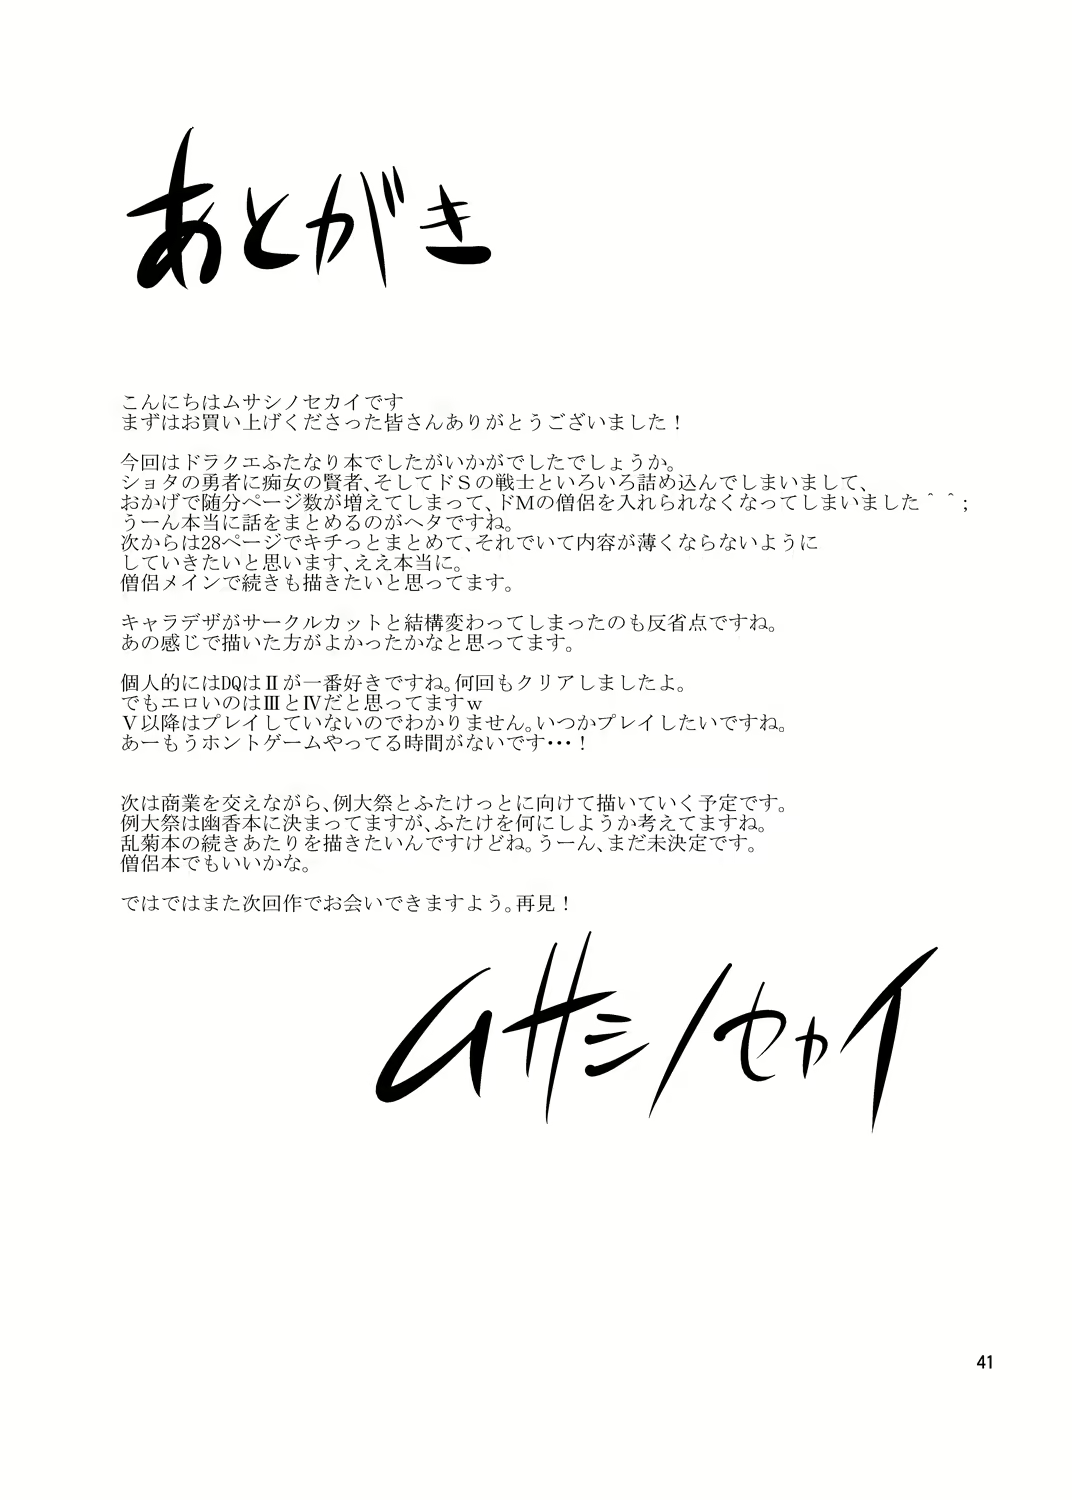 あとがき
こんにちはムサシノセカイです
まずはお買い上げくださった皆さんありがとうございました！
今回はドラクエふたなり本でしたがいかがでしたでしょうか。
ショタの勇者に痴女の賢者、そしてドＳの戦士といろいろ詰め込んでしまいまして、
おかげで随分ページ数が増えてしまって、ドＭの僧侶を入れられなくなってしまいました＾＾；
うーん本当に話をまとめるのがヘタですね。
次からは28ページでキチっとまとめて、それでいて内容が薄くならないように
していきたいと思います、ええ本当に。
僧侶メインで続きも描きたいと思ってます。
キャラデザがサークルカットと結構変わってしまったのも反省点ですね。
あの感じで描いた方がよかったかなと思ってます。
個人的にはDQはⅡが一番好きですね。何回もクリアしましたよ。
でもエロいのはⅢとⅣだと思ってますｗ
Ⅴ以降はプレイしていないのでわかりません。いつかプレイしたいですね。
あーもうホントゲームやってる時間がないです・・・！
次は商業を交えながら、例大祭とふたけっとに向けて描いていく予定です。
例大祭は幽香本に決まってますが、ふたけを何にしようか考えてますね。
乱菊本の続きあたりを描きたいんですけどね。うーん、まだ未決定です。
僧侶本でもいいかな。
ではではまた次回作でお会いできますよう。再見！
ムサシノセカイ
41